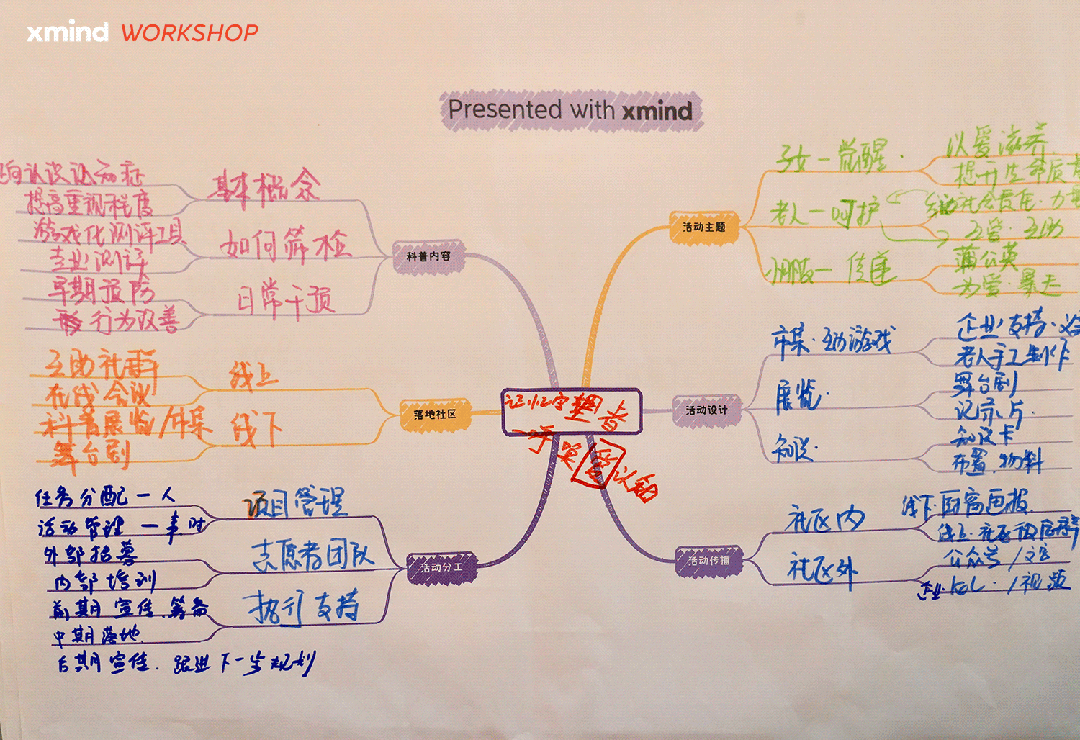 xmind WORKSHOP
Presented with xmind
记忆守望者
呼唤爱以铂
活动主题
子女一觉醒·
以爱滋养
提升生命质
老人一呵护
社会责任·力
互爱·互助
传递
蒲公英
为爱·
活动设计
市集·互动游戏
企业支持·
老人手工制作
展览·
舞台剧
记录片
知识卡
布置·物料
活动传播
社区内
线下
画报
线上·社区
社区外
公众号/文
KOL·/视频
科普内容
基本概念
认识认知症
提高重视程度
如何筛检
游戏化测评工具
专业测评
日常干预
早期预防
行为改善
落地社区
线上
互助社群
在线会议
线下
科普展览/市集
舞台剧
活动分工
项目管理
任务分配一人
活动管理一事 时
志愿者团队
外部招募
内部培训
执行支持
前期宣传·筹备
中期落地
后期宣传·跟进下一步规划